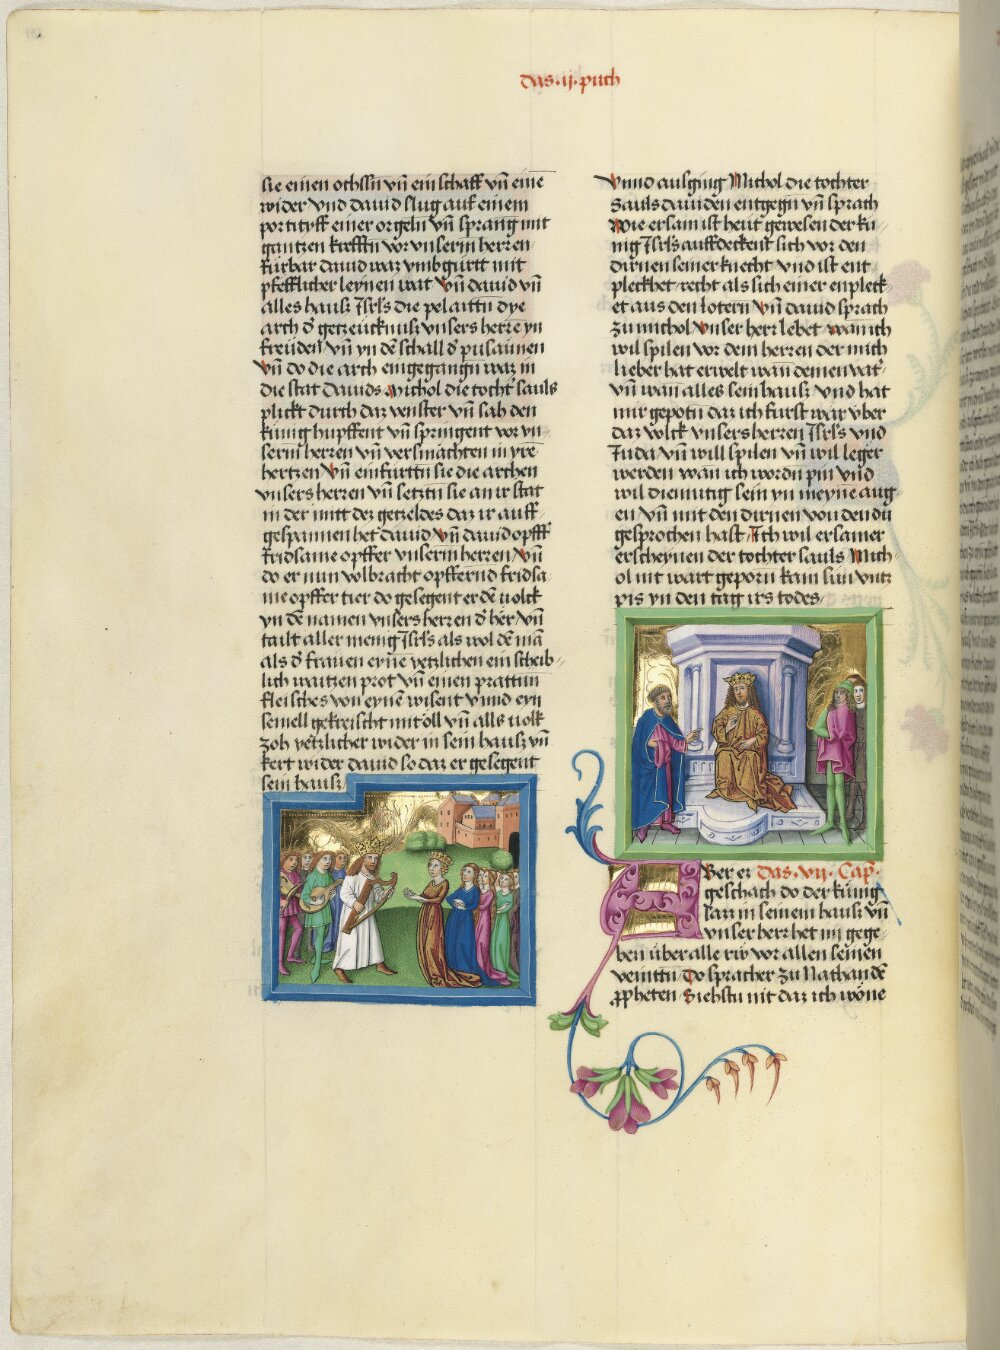 das · ij · puch
sie einen ochssñ vñ ein schaff vñ eine
wider vnd dauid slug auf einem
portityff einer orgeln vñ sprang mit
gantzen krefftñ vor vnserm herren
furbar dauid waz vmbgurtt mit
pfefflicher leynen wat vñ dauid vñ
alles hausz Isrls die pelaittñ dye
arch d' getzeucknusz vnsers herrē yn
freüden vñ yn dē schall d' pusaunen
vñ do die arch eingegangñ waz in
die stat Dauids Michol die tocht' sauls
plickt durch daz venster vñ sah den
künig hupffent vñ springent vor vn
serm herren vñ versmachten in yre
hertzen vñ einfurttñ sie die archen
vnsers herren vñ setztñ sie an ir stat
in der mitt dez getzeldes daz ir auff
gespannen het dauid vñ dauid opfft
fridsame opffer vnserm herren vñ
do er nun volbracht opffernd fridsa
me opffer tier do gesegent er dē volck
yn dē namen vnsers herren d' her vñ
tailt aller menig Isrls als wol dē mā
als d' frauen eyne yetzlichen ein scheib
lich waitzen prot vñ einen prattnn
fleisches von eynē wisent vnnd eyn
semell gekreischt mit öll vñ alls volk
zoh yetzlicher wider in sein hausz vñ
kert wider dauid so daz er gesegent
sein hausz
Vnnd ausging Michol die tochter
Sauls dauiden entgegñ vñ sprach
Wie ersam ist heut gewesen der kü
nig Isrls auffdeckent sich vor den
dirnen seiner knecht vnd ist ent
pleckhet recht als sich einer enpleck
et aus den lotern vñ dauid sprach
zu michol vnser herr lebet wan ich
wil spilen vor dem herren der mich
lieber hat erwelt wan deinen vat'
vñ wan alles sein hausz vnd hat
mir gepotñ daz ich furst wär vber
daz wolck vnsers herren Isrls vnd
Juda vñ will spilen vñ wil leger
werden wan ich wordñ pin vnd
wil diemutig sein yn meyne aug
en vñ mit den dirnen von den dü
gesprochen hast Ich wil ersamer
erscheynen der tochter sauls Mich
ol nit wart geporn kain sun vntz
pis yn den tag irs todes
Das · vij · Cap ·
Aber er
geschach do der künig
sasz in seinem hausz vñ
vnser herr het im gege
ben über alle rw vor allen seinen
veinttñ Do sprach er zu Nathan dē
ppheten Siehstu nit daz ich wöne